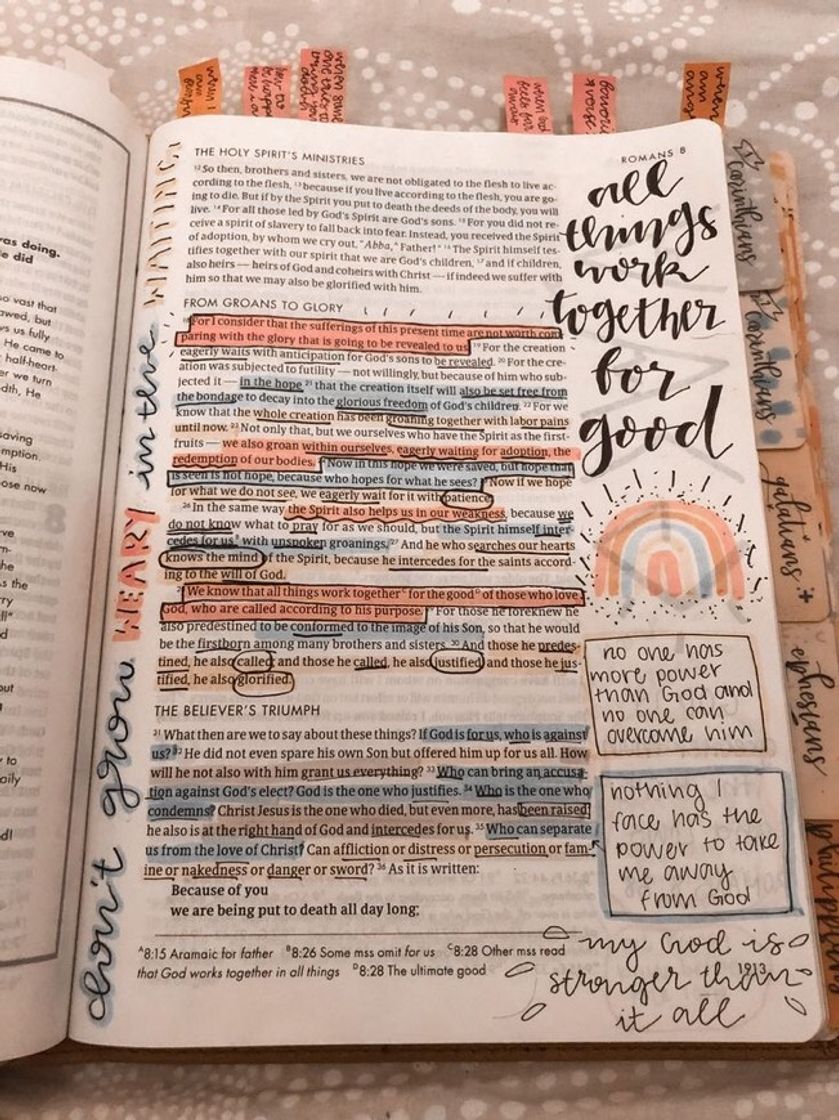 when I
am
when God
feels far
away
favorite
verse
when I
am
angry
THE HOLY SPIRIT'S MINISTRIES
ROMANS 8
12 So then, brothers and sisters, we are not obligated to the flesh to live ac-
cording to the flesh, 13 because if you live according to the flesh, you are go-
ing to die. But if by the Spirit you put to death the deeds of the body, you will
live. 14 For all those led by God's Spirit are God's sons. 15 For you did not re-
ceive a spirit of slavery to fall back into fear. Instead, you received the Spirit
of adoption, by whom we cry out, "Abba,A Father!" 16 The Spirit himself tes-
tifies together with our spirit that we are God's children, 17 and if children,
also heirs — heirs of God and coheirs with Christ — if indeed we suffer with
him so that we may also be glorified with him.
FROM GROANS TO GLORY
18 For I consider that the sufferings of this present time are not worth com-
paring with the glory that is going to be revealed to us. 19 For the creation
eagerly waits with anticipation for God's sons to be revealed. 20 For the cre-
ation was subjected to futility — not willingly, but because of him who sub-
jected it — in the hope 21 that the creation itself will also be set free from
the bondage to decay into the glorious freedom of God's children. 22 For we
know that the whole creation has been groaning together with labor pains
until now. 23 Not only that, but we ourselves who have the Spirit as the first-
fruits — we also groan within ourselves, eagerly waiting for adoption, the
redemption of our bodies. 24 Now in this hope we were saved, but hope that
is seen is not hope, because who hopes for what he sees? 25 Now if we hope
for what we do not see, we eagerly wait for it with patience.
26 In the same way the Spirit also helps us in our weakness, because we
do not know what to pray for as we should, but the Spirit himself inter-
cedes for usB with unspoken groanings. 27 And he who searches our hearts
knows the mind of the Spirit, because he intercedes for the saints accord-
ing to the will of God.
28 We know that all things work togetherC for the goodD of those who love
God, who are called according to his purpose. 29 For those he foreknew he
also predestined to be conformed to the image of his Son, so that he would
be the firstborn among many brothers and sisters. 30 And those he predes-
tined, he also called; and those he called, he also justified; and those he jus-
tified, he also glorified.
THE BELIEVER'S TRIUMPH
31 What then are we to say about these things? If God is for us, who is against
us? 32 He did not even spare his own Son but offered him up for us all. How
will he not also with him grant us everything? 33 Who can bring an accusa-
tion against God's elect? God is the one who justifies. 34 Who is the one who
condemns? Christ Jesus is the one who died, but even more, has been raised;
he also is at the right hand of God and intercedes for us. 35 Who can separate
us from the love of Christ? Can affliction or distress or persecution or fam-
ine or nakedness or danger or sword? 36 As it is written:
Because of you
we are being put to death all day long;
A8:15 Aramaic for father B8:26 Some mss omit for us C8:28 Other mss read
that God works together in all things D8:28 The ultimate good
1913
don't grow WEARY in the WAITING
all
things
work
together
for
good
no one has
more power
than God and
no one can
overcome him
nothing I
face has the
power to take
me away
from God
my God is
stronger than
it all
corinthians
corinthians
galatians
ephesians
was doing.
did
so vast that
awed, but
us fully
He came to
half-heart-
we turn
He
saving
His
now
the
out
to